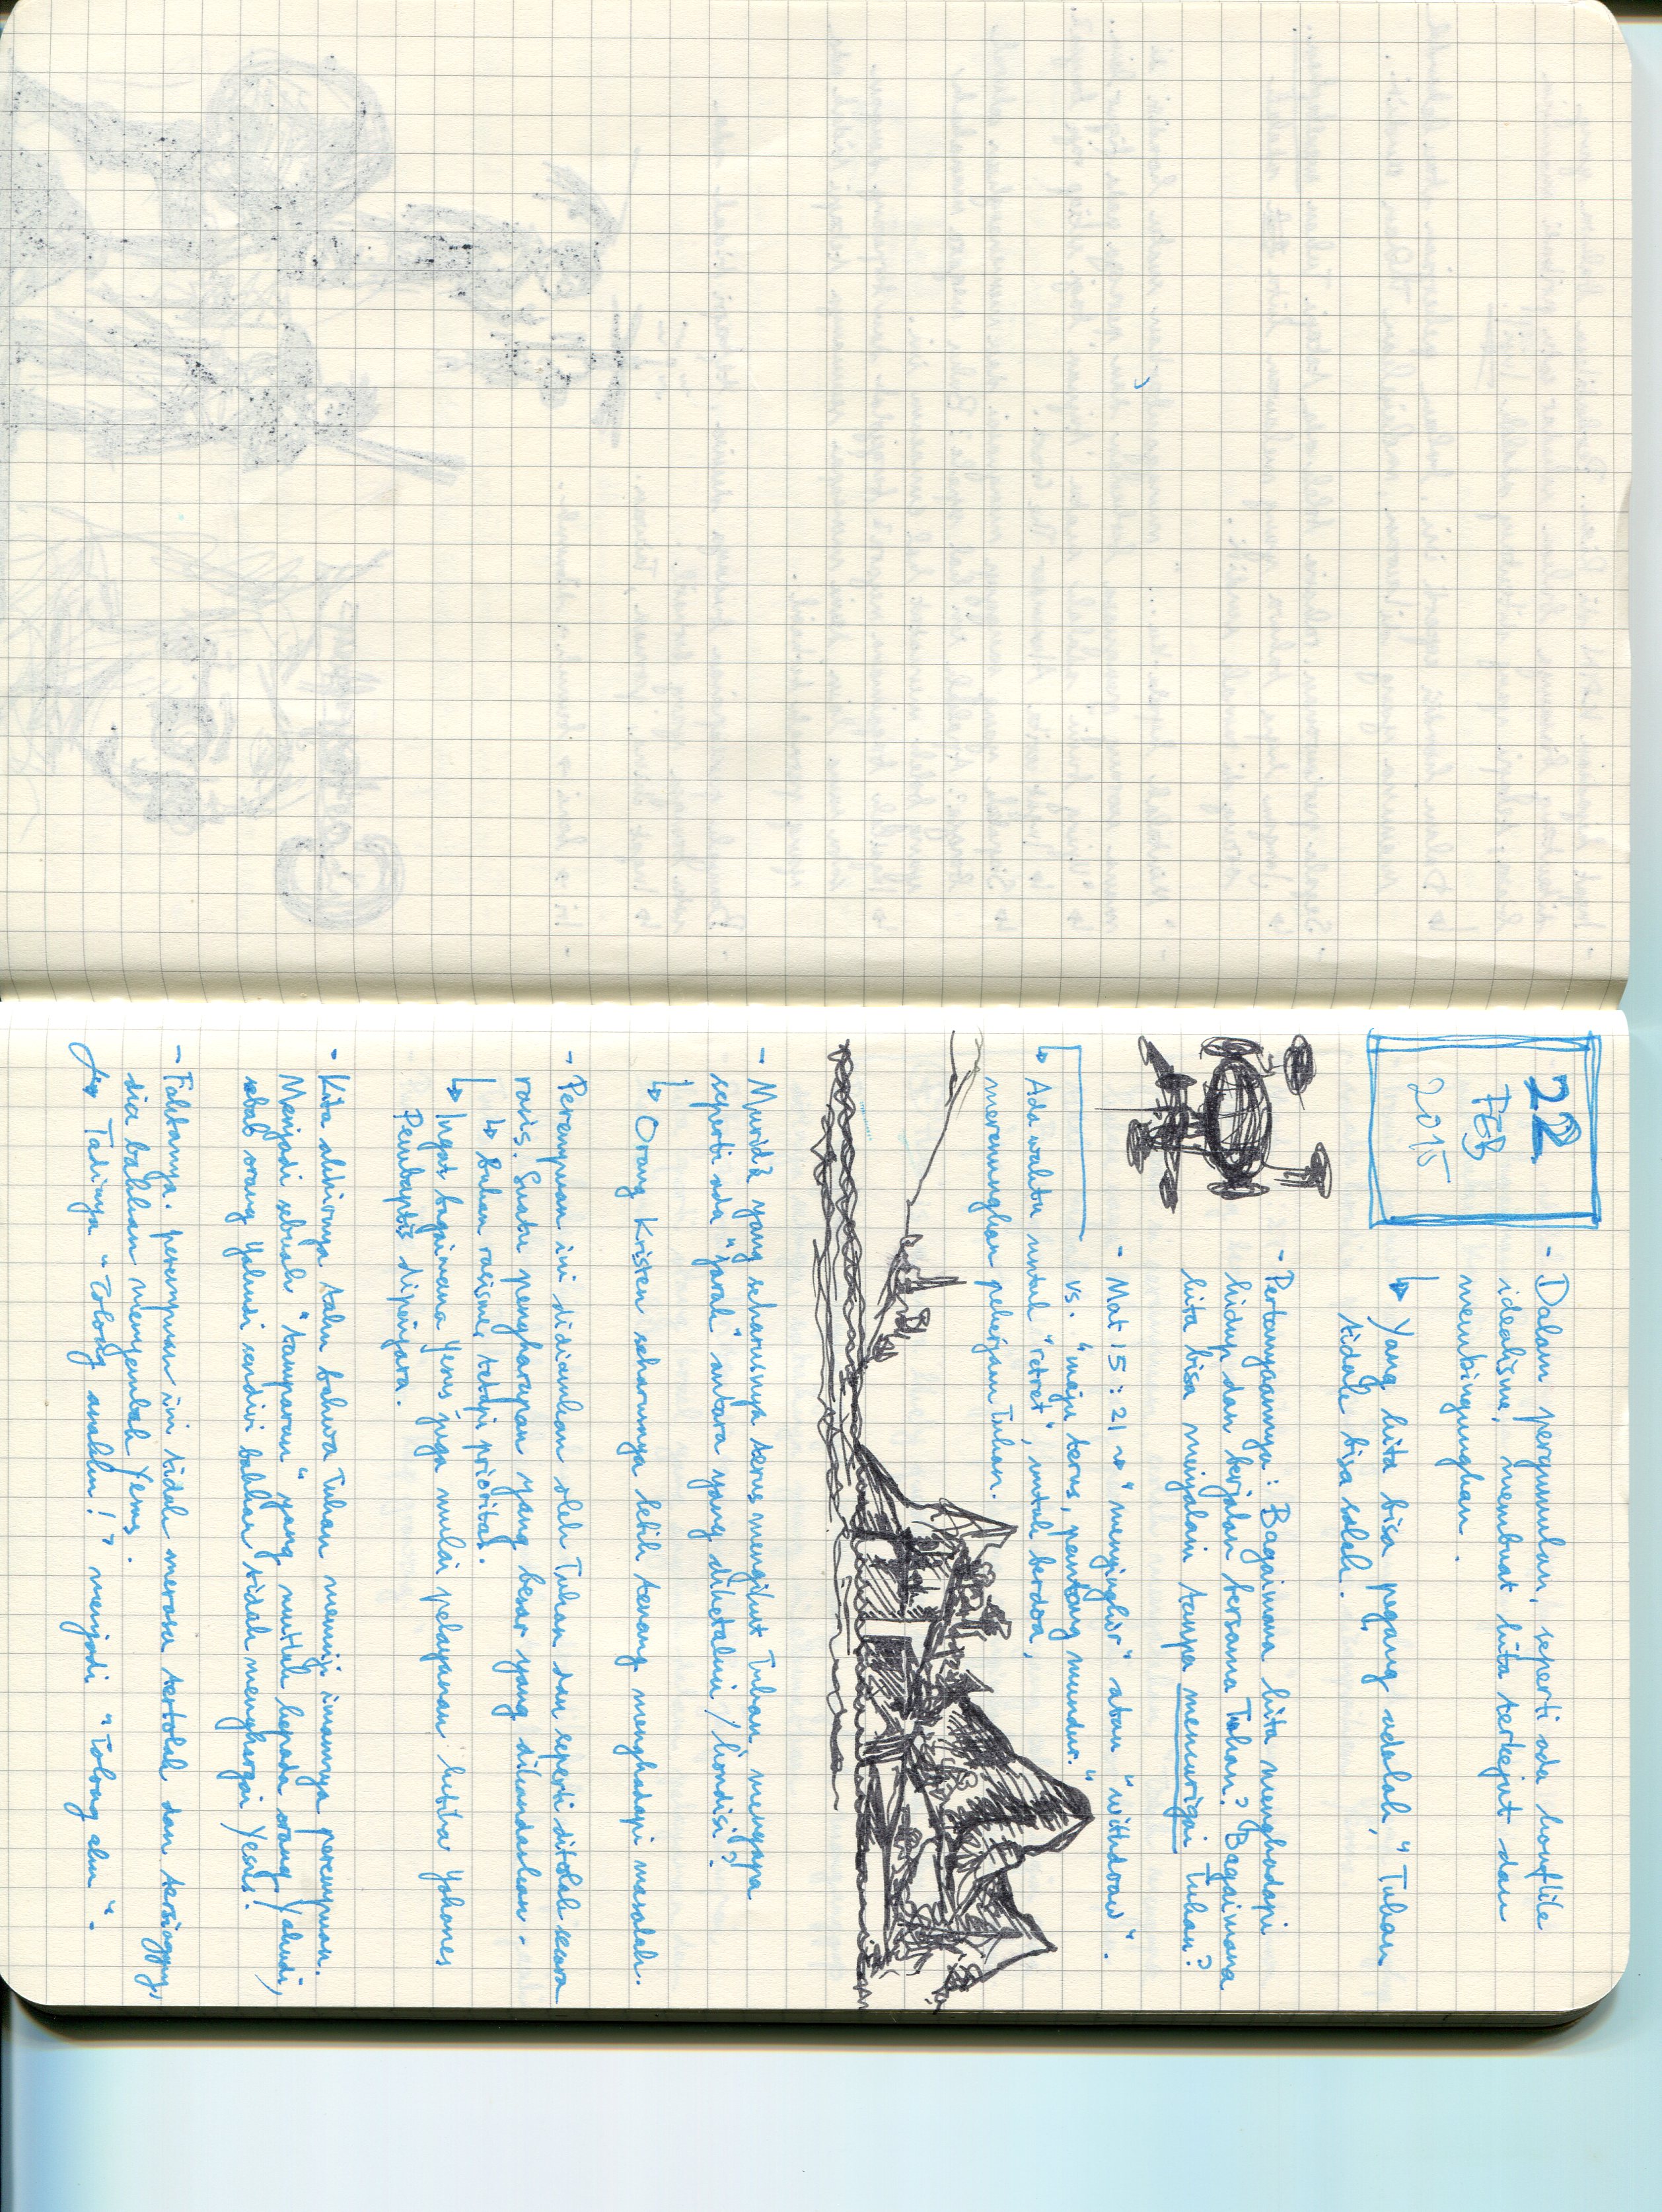 22
FEB
2015
- Dalam pergumulan, seperti ada konflik
idealisme, membuat kita terkejut dan
membingungkan.
↳ Yang kita bisa pegang adalah, "Tuhan
tidak bisa salah.
- Pertanyaannya: Bagaimana kita menghadapi
hidup dan berjalan bersama Tuhan? Bagaimana
kita bisa menjalani tanpa mencurigai Tuhan?
- Mat 15:21 → "menyingkir" atau "withdraw".
vs. "maju terus, pantang mundur."
↳ Ada waktu untuk "retret", untuk berdoa,
merenungkan pekerjaan Tuhan.
- Murid2 yang seharusnya terus mengikut Tuhan, mengapa
seperti ada "jarak" antara yang diketahui / kondisi?
↳ Orang Kristen seharusnya lebih tenang menghadapi masalah.
- Perempuan ini didiamkan oleh Tuhan dan seperti ditolak secara
rasis. Suatu pengharapan yang besar yang dikandaskan.
↳ bukan rasisme, tetapi prioritas.
↳ Ingat bagaimana Yesus juga mulai pelayanan ketika Yohanes
Pembaptis dipenjara.
- Kita akhirnya tahu bahwa Tuhan memuji imannya perempuan.
Menjadi sebuah "tamparan" yang mutlak kepada orang Yahudi,
sebab orang Yahudi sendiri bahkan tidak menghargai Yesus!
- Faktanya. perempuan ini tidak merasa tertolak dan tersinggung,
dia bahkan menyembah Yesus.
↳ Tadinya "Tolong anakku!" menjadi "Tolong aku".